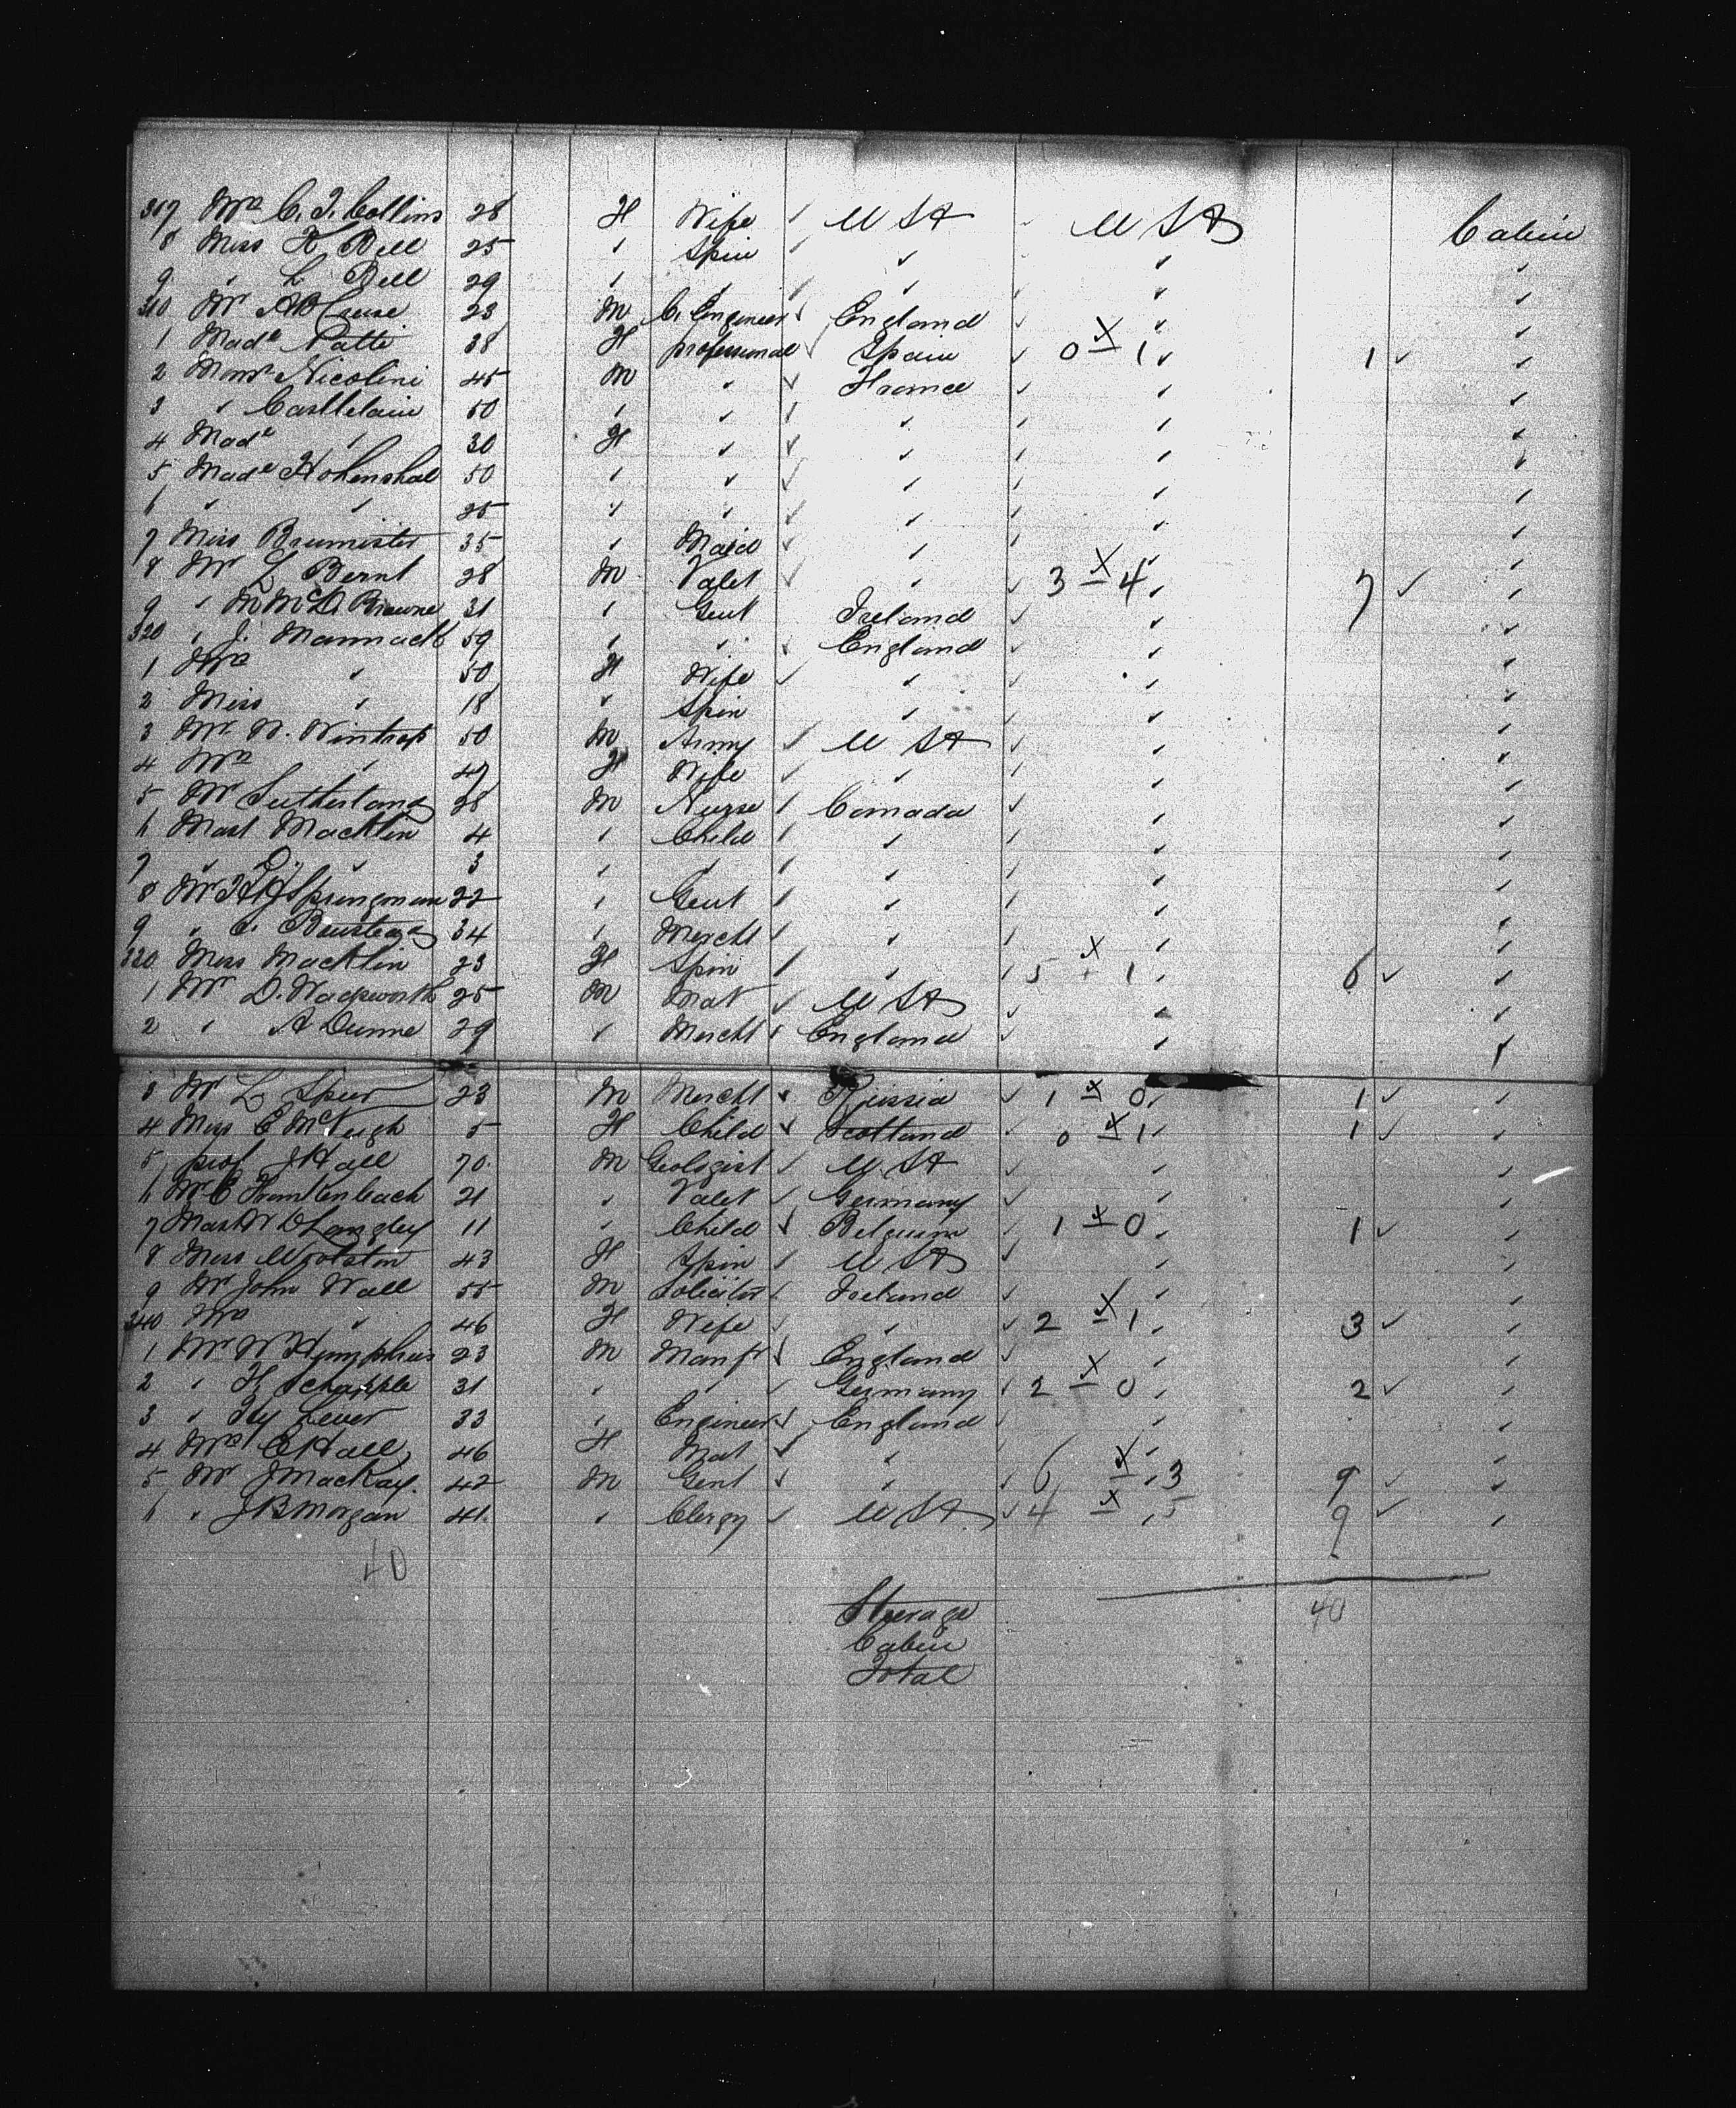 307 Mrs C. J. Collins 28 F Wife U St A U St A Cabin
8 Miss K Bell 25 " Spin " " "
9 " L Bell 29 " " " " "
310 Mr A B Cruse 23 M C. Engineer England " "
1 Made Patti 38 F professional Spain 0 x 1 " 1 "
2 Monsr Nicolini 45 M " France " "
3 " Castlelain 50 " " " " "
4 Made " 30 F " " " "
5 Made Hohenshal 50 " " " " "
6 " " 25 " " " " "
7 Miss Brumister 35 " Maid " " "
8 Mr L Bernt 28 M Valet " 3 x 4 " 7 "
9 " M McD. Browne 31 " Gent Ireland " "
320 " J. Mannack 59 " " England " "
1 Mrs " 50 F Wife " " "
2 Miss " 18 " Spin " " "
3 Mr W. Wintrop 50 M Army U St A " "
4 Mrs " 47 F Wife " " "
5 Mr Sutherland 28 M Nurse Canada " "
6 Mast Macklin 4 " Child " " "
7 " D. " 3 " " " " "
8 Mr Springman 22 " Gent " " "
9 " Boustead 34 " Mercht " " "
320 Miss Macklin 23 F Spin " 5 x 1 " 6 "
1 Mr D. Wadsworth 25 M Mat U St A " "
2 " A Dunne 29 " Mercht England " "
3 Mr L Spur 23 M Mercht Russia 1 x 0 " 1 "
4 Miss E McVeigh 5 F Child Scotland 0 x 1 " 1 "
5 prof J Hall 70 M Geologist U St A " "
6 Mr C Frankenbach 21 " Valet Germany " "
7 Mast W D Langley 11 " Child Belguim 1 x 0 " 1 "
8 Miss Woolston 43 F Spin U St A " "
9 Mr John Wall 55 M Solicitor Ireland " "
340 Mrs " 46 F Wife " 2 x 1 " 3 "
1 Mr W Humphries 23 M Manfr England " "
2 " F Schapple 31 " " Germany 2 x 0 " 2 "
3 " Hy Lever 33 " Engineer England " "
4 Mrs C Hall 46 F Mat " " "
5 Mr J Mackay. 42 M Gent " 6 x 3 " 9 "
6 " J B Morgan 41 " Clergy U St A 4 x 5 " 9 "
40
Steerage 40
Cabin
Total